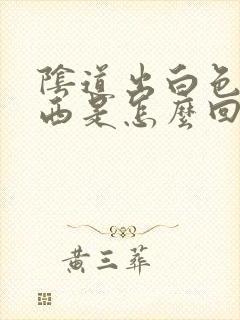 陰道出白色
西是怎麼回
黃三葬